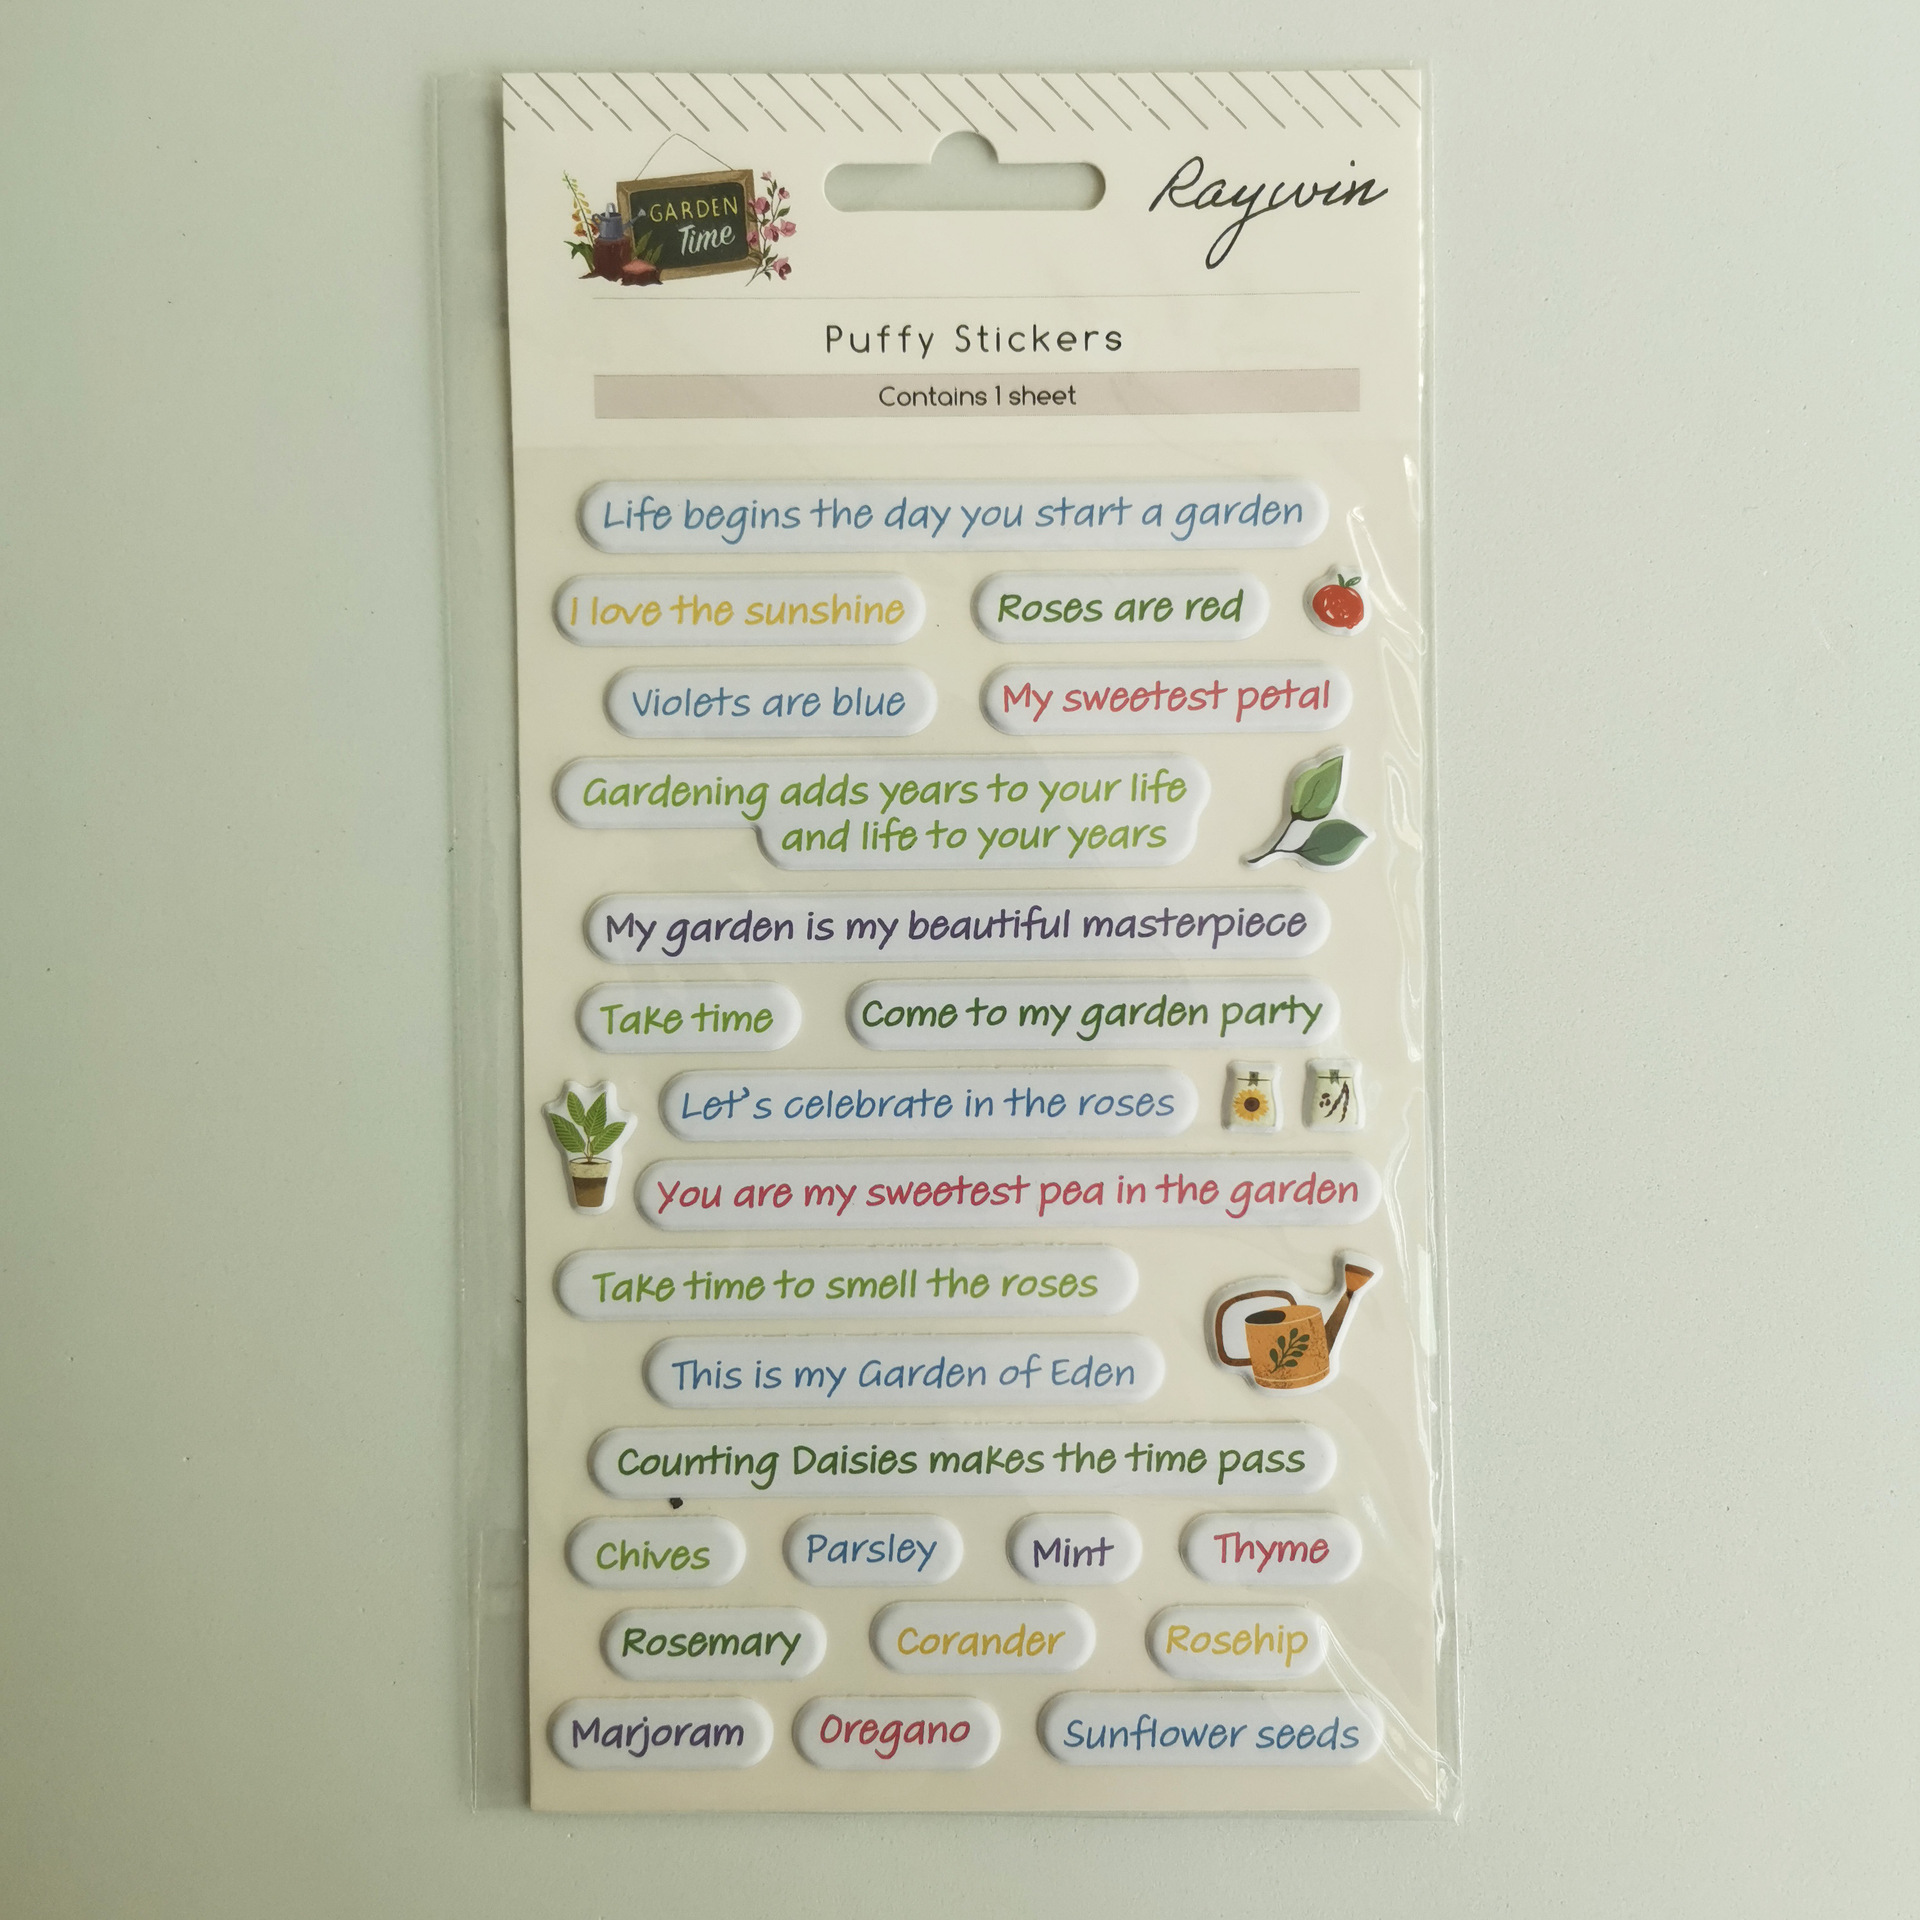 GARDEN
Time
Raywin
Puffy Stickers
Contains 1 sheet
Life begins the day you start a garden
I love the sunshine
Roses are red
Violets are blue
My sweetest petal
Gardening adds years to your life
and life to your years
My garden is my beautiful masterpiece
Take time
Come to my garden party
Let's celebrate in the roses
You are my sweetest pea in the garden
Take time to smell the roses
This is my Garden of Eden
Counting Daisies makes the time pass
Chives
Parsley
Mint
Thyme
Rosemary
Corander
Rosehip
Marjoram
Oregano
Sunflower seeds